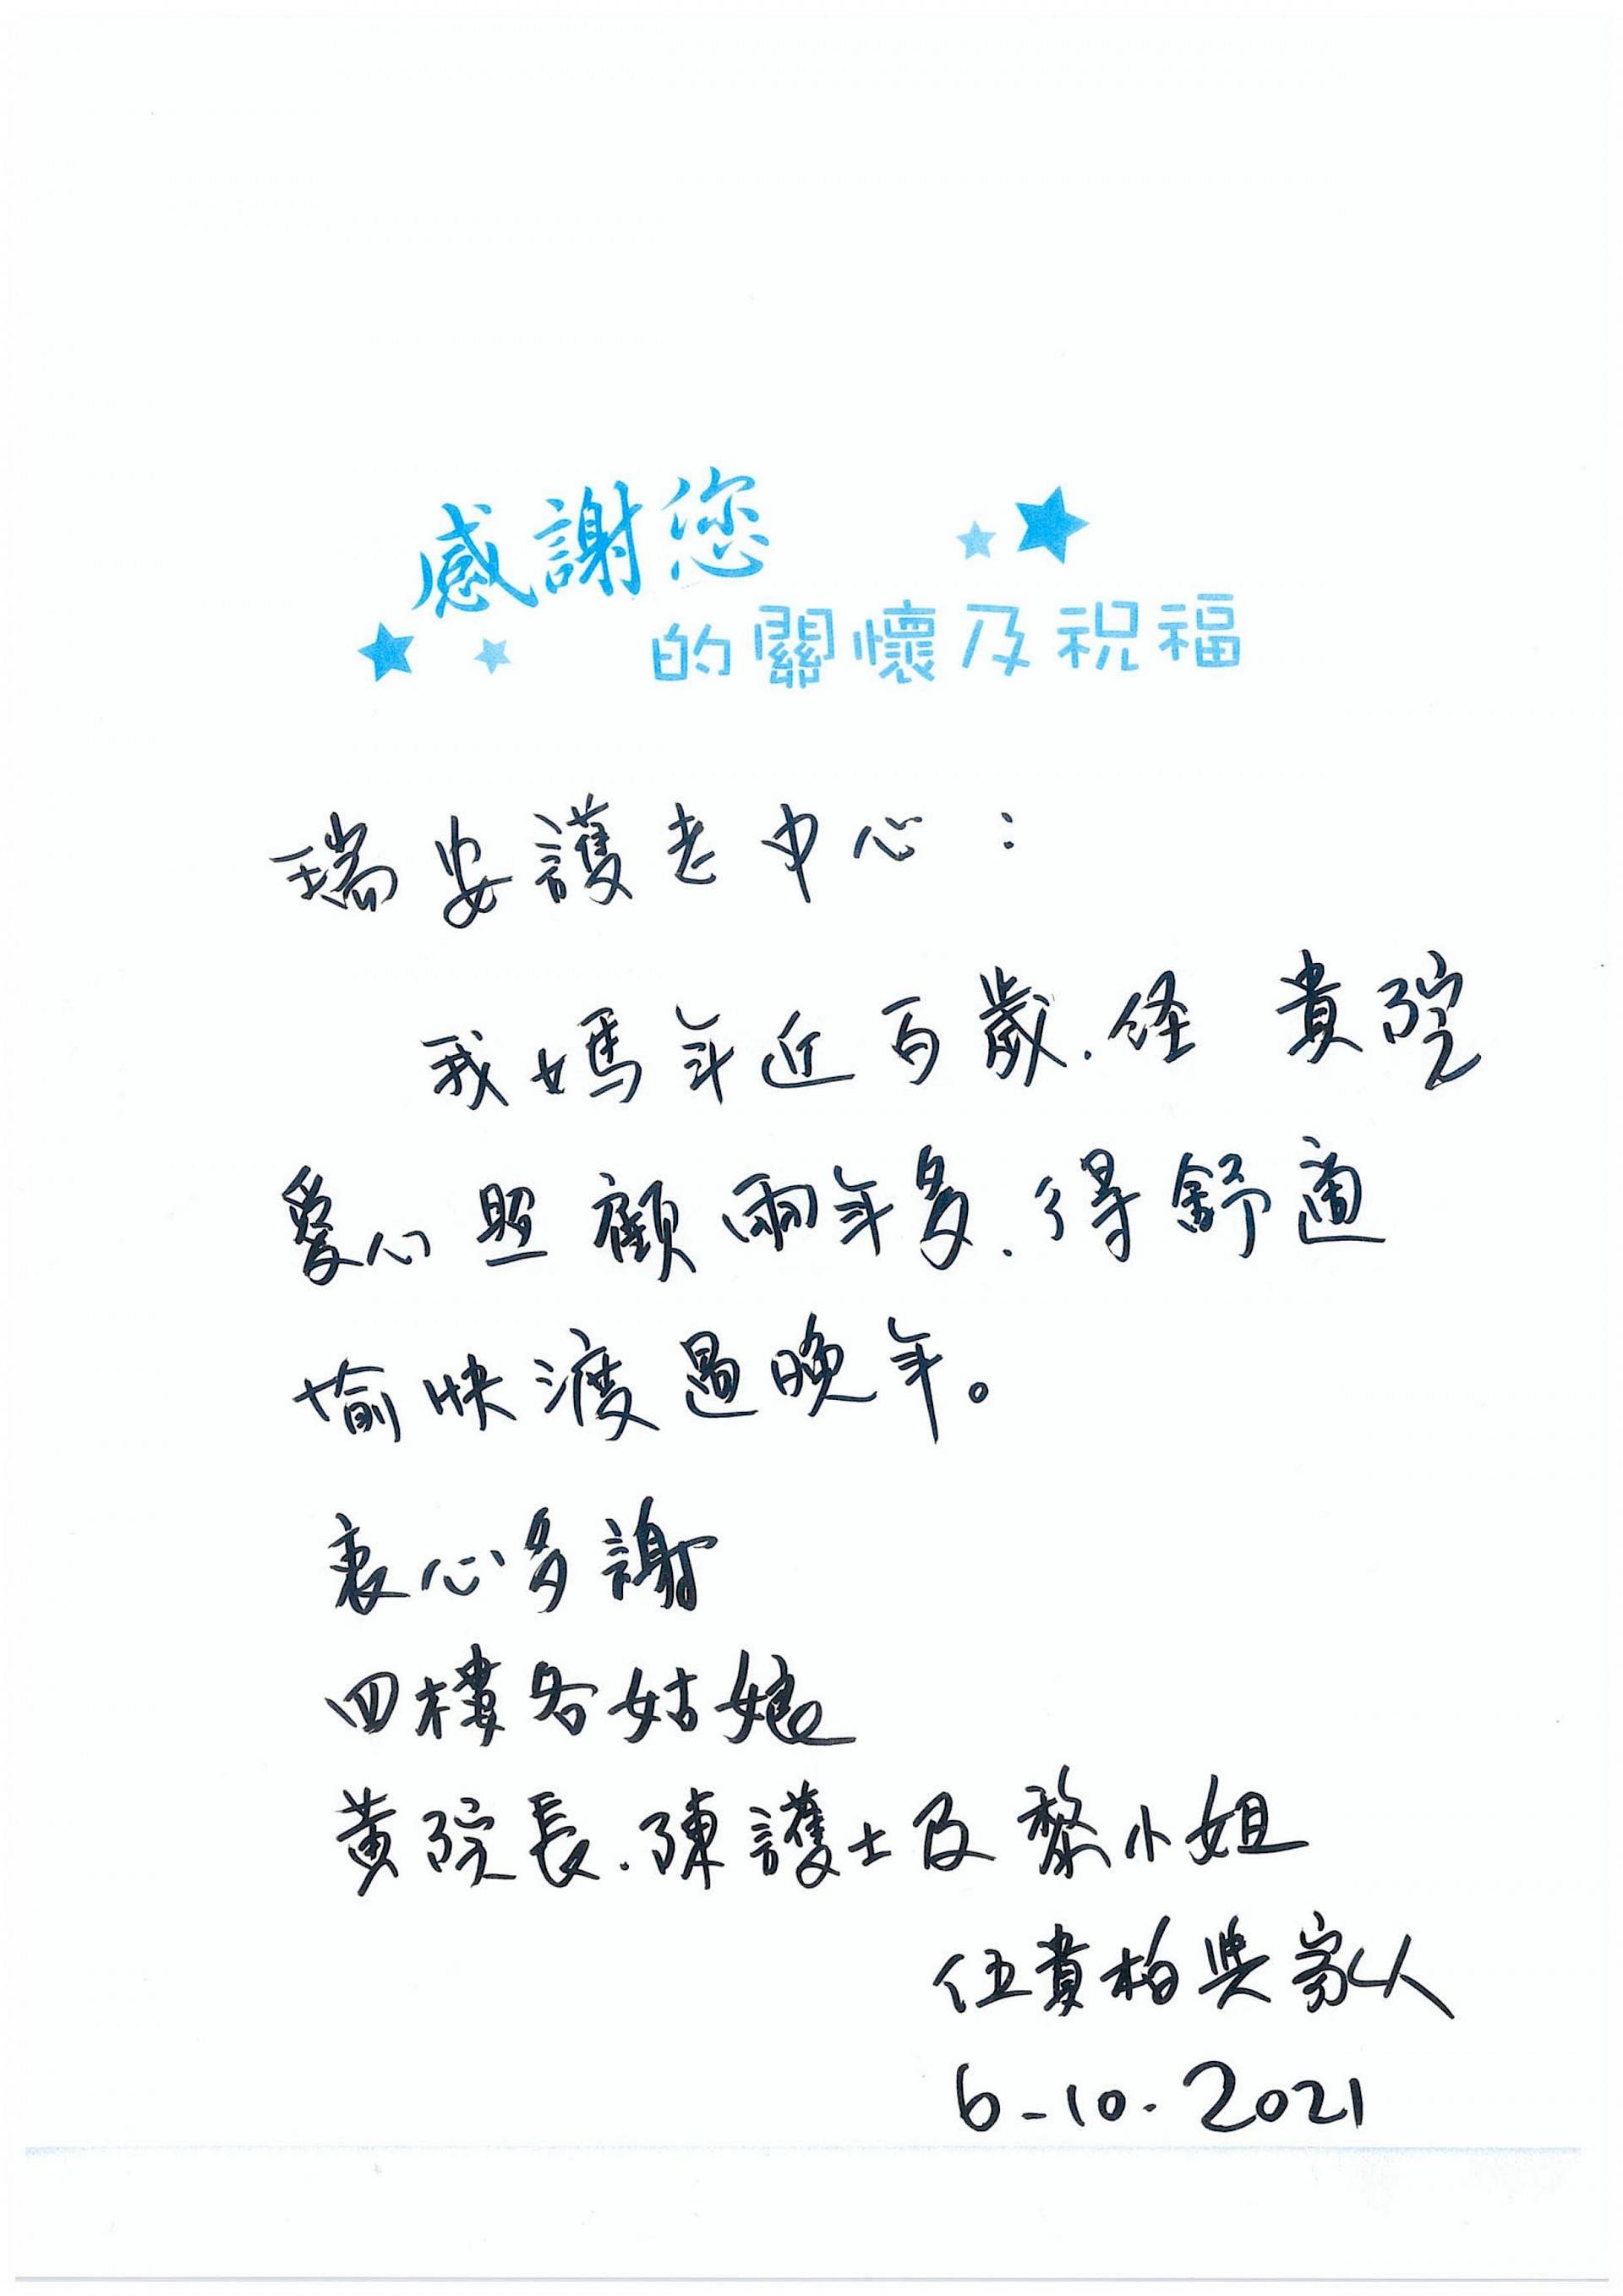 感謝您
的關懷及祝福
瑞安護老中心：
我媽年近百歲.經 貴院
愛心照顧兩年多.得舒適
愉快渡過晚年。
衷心多謝
四樓各姑娘
黃院長.陳護士及黎小姐
伍貴柏與家人
6-10-2021